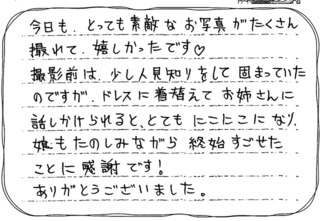 今日も、とっても素敵なお写真がたくさん
撮れて、嬉しかったです♡
撮影前は、少し人見知りをして固まっていた
のですが、ドレスに着替えてお姉さんに
話しかけられると、とてもにこにこになり、
娘もたのしみながら終始すごせた
ことに感謝です!
ありがとうございました。